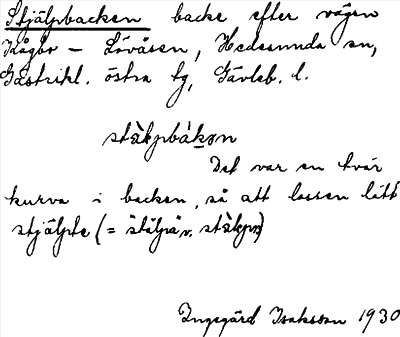 Stjälpbacken backe efter vägen
Kågbo – Lövåsen, Hedesunda sn,
Gästrikl. östra tg, Gävleb. l.
stä̀lpbàkən
Det var en tvär
kurva i backen, så att lassen lätt
stjälpte (= stälpä v.
Ingegärd Isaksson 1930